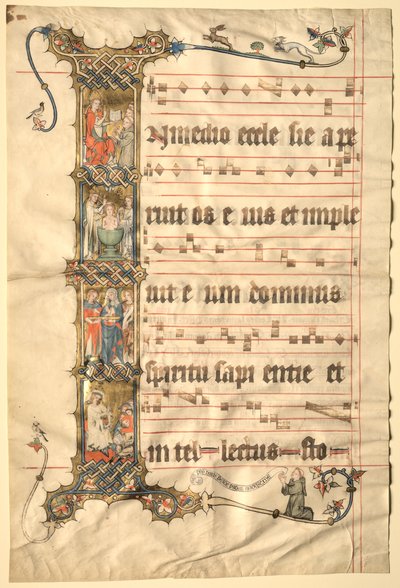 IN medio eccle sie a pe
ruit os e ius et imple
uit e um dominus
spiritu sapi entie et
in tel lectus sto